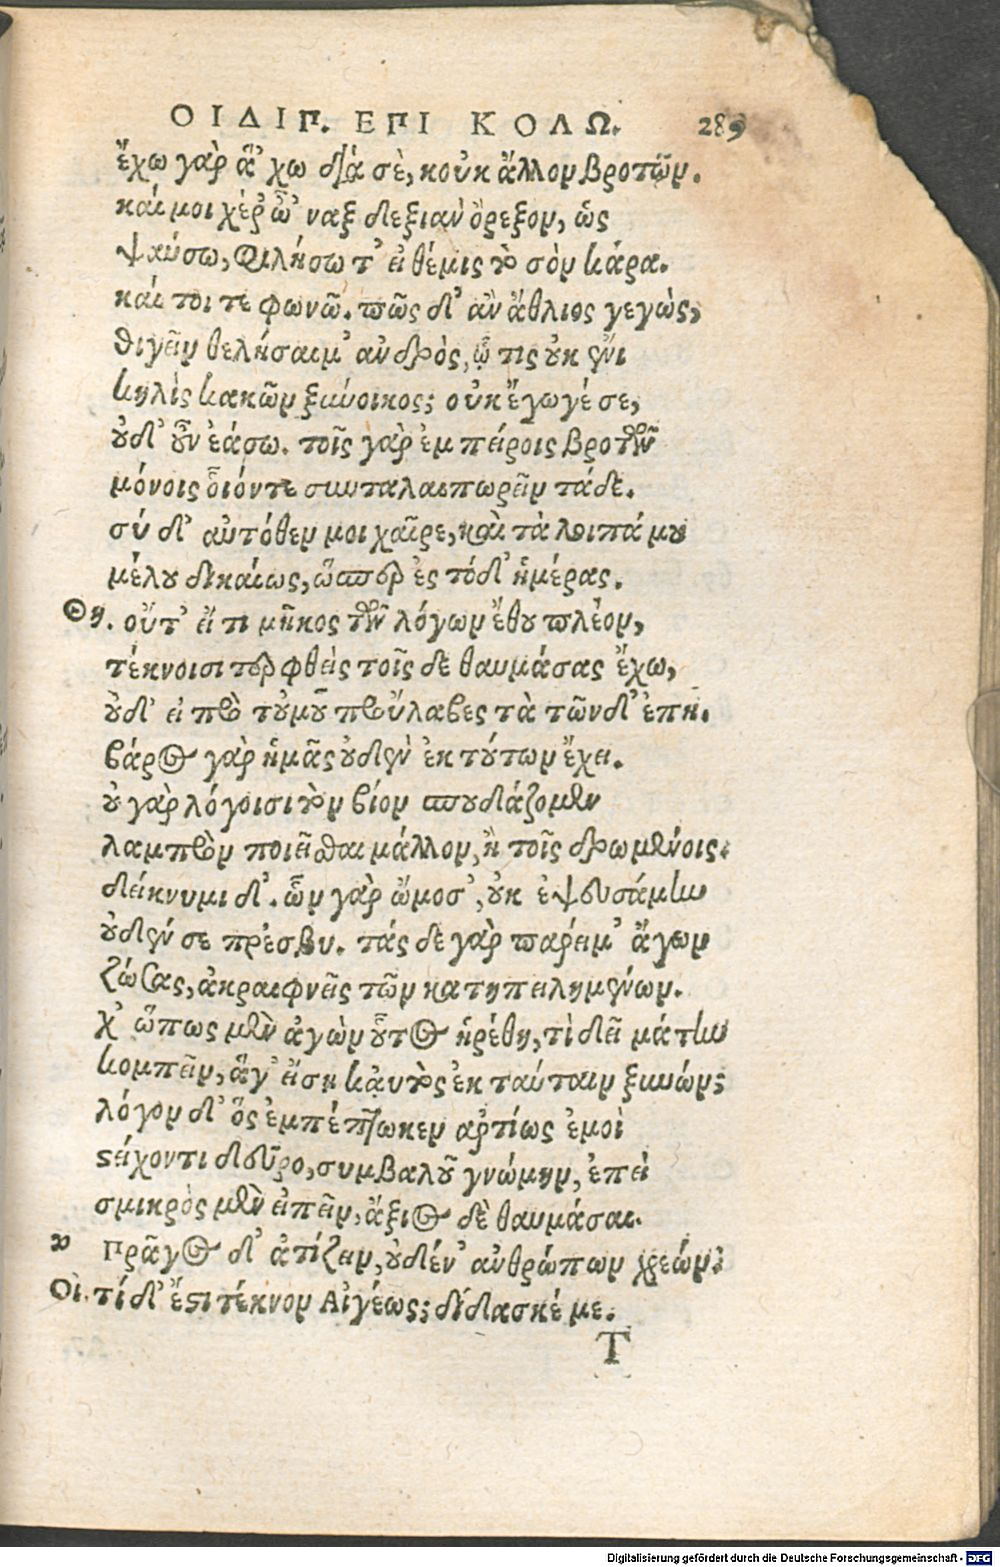 ΟΙΔΙΠ. ΕΠΙ ΚΟΛΩ. 289
ἔχω γὰρ ἅ' χω διὰ σὲ, κοὐκ ἄλλον βροτῶν.
καί μοι χέρ' ὦ' ναξ δεξιὰν ὄρεξον, ὡς
ψαύσω, φιλήσω τ' εἰ θέμις τὸ σὸν κάρα.
καί τοι τε φωνῶ. πῶς δ' ἂν ἄθλιος γεγὼς,
θιγεῖν θελήσαιμ' ἀνδρὸς, ᾧ τις οὐκ ἔνι
κηλὶς κακῶν ξύνοικος; οὐκ ἔγωγέ σε,
οὐδ' οὖν ἐάσω. τοῖς γὰρ ἐμπείροις βροτῶν
μόνοις οἷόντε συνταλαιπωρεῖν τάδε.
σύ δ' αὐτόθεν μοι χαῖρε, καὶ τὰ λοιπά μου
μέλου δικαίως, ὥσπερ ἐς τόδ' ἡμέρας.
Θη. οὔτ' εἴ τι μῆκος τῶν λόγων ἔθου πλέον,
τέκνοισι τερφθεὶς τοῖς δε θαυμάσας ἔχω,
οὐδ' εἰ πρὸ τοὐμοῦ προὔλαβες τὰ τῶνδ' ἔπη.
βάρος γὰρ ἡμᾶς οὐδὲν ἐκ τούτων ἔχει.
οὐ γὰρ λόγοισι τὸν βίον σπουδάζομεν
λαμπρὸν ποιεῖσθαι μάλλον, ἢ τοῖς δρωμένοις.
δείκνυμι δ'. ὧν γὰρ ὤμοσ', οὐκ ἐψευσάμην
οὐδέν σε πρέσβυ. τάς δε γὰρ πάρειμ' ἄγων
ζώσας, ἀκραιφνεῖς τῶν κατηπειλημένων.
χ' ὥπως μὲν ἁγὼν οὗτος ᾑρέθη, τὶ δεῖ μάτην
κομπεῖν, ἅγ' εἴση καὐτὸς ἐκ ταύταιν ξυνών;
λόγον δ' ὃς ἐμπέπτωκεν ἀρτίως ἐμοὶ
στείχοντι δεῦρο, συμβαλοῦ γνώμην, ἐπεὶ
σμικρὸς μὲν εἰπεῖν, ἄξιος δὲ θαυμάσαι.
Πρᾶγος δ' ἀτίζειν, οὐδέν' ἀνθρώπων χρεών.
Οἰ. τί δ' ἔστι τέκνον Αἰγέως; δίδασκέ με.
Τ
Digitalisierung gefördert durch die Deutsche Forschungsgemeinschaft - DFG